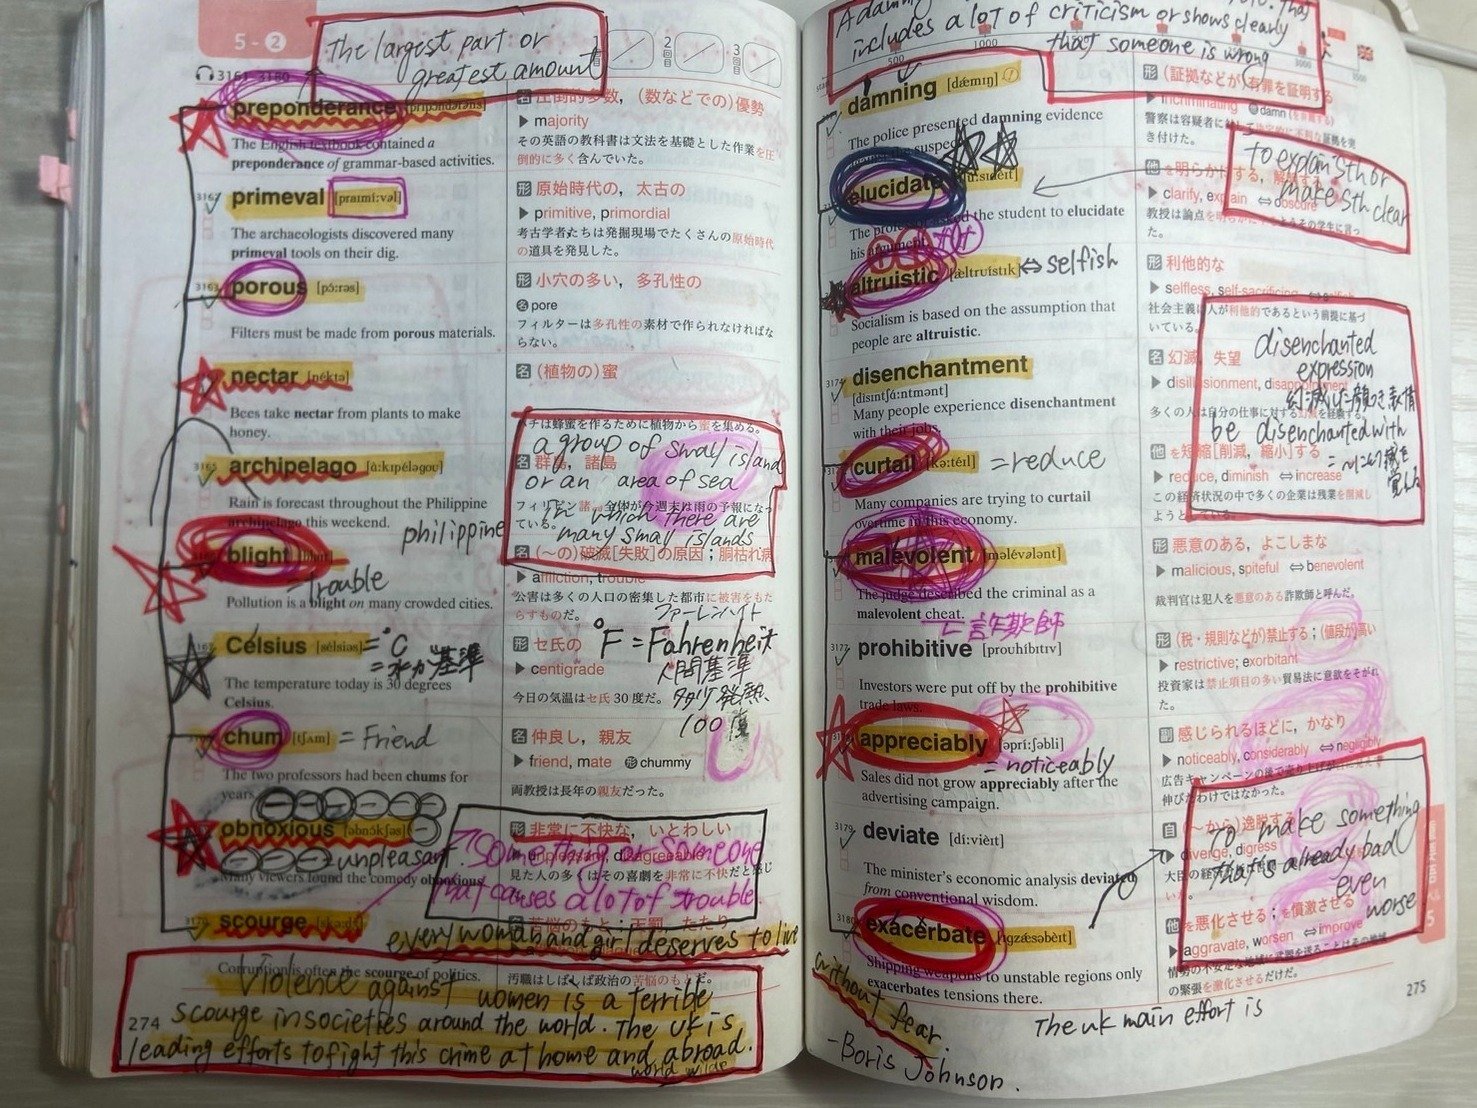 5 - 2
The largest part or
greatest amount
1回目 2回目 3回目
3161 - 3180
preponderance
名 圧倒的多数, (数などでの) 優勢
▶ majority
The English textbook contained a
preponderance of grammar-based activities.
その英語の教科書は文法を基礎とした作業を圧
倒的に多く含んでいた。
3162
primeval [praɪmíːvəl]
形 原始時代の, 太古の
▶ primitive, primordial
The archaeologists discovered many
primeval tools on their dig.
考古学者たちは発掘現場でたくさんの原始時代
の道具を発見した。
3163
porous [pɔ́ːrəs]
形 小穴の多い, 多孔性の
名 pore
Filters must be made from porous materials.
フィルターは多孔性の素材で作られなければな
らない。
nectar [néktə]
名 (植物の) 蜜
Bees take nectar from plants to make
honey.
ハチは蜂蜜を作るために植物から蜜を集める。
a group of small island
or an area of sea
in which there are
many small islands
3165
archipelago [ɑ̀ːkɪpéləgoʊ]
名 群島, 諸島
Rain is forecast throughout the Philippine
archipelago this weekend.
philippine
blight
= Trouble
名 (〜の) 破滅[失敗]の原因 ; 胴枯れ病
▶ affliction, trouble
Pollution is a blight on many crowded cities.
公害は多くの人口の密集した都市に被害をもた
らすものだ。
3167
Celsius [sélsiəs] = °C
= 水が基準
形 セ氏の
▶ centigrade
ファーレンハイト
°F = Fahrenheit
人間基準
100度
The temperature today is 30 degrees
Celsius.
今日の気温はセ氏30度だ。
chum [tʃʌm] = Friend
名 仲良し, 親友
▶ friend, mate 形 chummy
The two professors had been chums for
years.
両教授は長年の親友だった。
obnoxious [əbnɑ́kʃəs]
= unpleasant
形 非常に不快な, いとわしい
▶ unpleasant, disagreeable
Many viewers found the comedy obnoxious.
見た人の多くはその喜劇を非常に不快だと感じ
something or someone
that causes a lot of trouble.
scourge
Corruption is often the scourge of politics.
汚職はしばしば政治の苦悩のもとだ。
every woman and girl deserves to live
without fear.
- Boris Johnson.
Violence against women is a terrible
scourge in societies around the world. The UK is
leading efforts to fight this crime at home and abroad.
world wide
274
includes a lot of criticism or shows clearly
that someone is wrong
500 1000 3000 3500
damning [dǽmɪŋ]
形 (証拠などが) 有罪を証明する
▶ incriminating 動 damn
The police presented damning evidence
elucidate
to explain sth or
make sth clear
▶ clarify, explain ⇔ obscure
The professor asked the student to elucidate
his argument.
altruistic [æ̀ltruístɪk] ⇔ selfish
形 利他的な
▶ selfless, self-sacrificing ⇔ selfish
Socialism is based on the assumption that
people are altruistic.
社会主義は人が利他的であるという前提に基づ
いている。
3174
disenchantment
[dìsɪntʃɑ́ːntmənt]
名 幻滅, 失望
▶ disillusionment, disappointment
Many people experience disenchantment
with their jobs.
多くの人は自分の仕事に対する幻滅を経験する。
disenchanted
expression
幻滅した顔つき表情
be disenchanted with
= 〜に幻滅を
覚える
curtail [kəːtéɪl] = reduce
他 を短縮[削減, 縮小]する
▶ reduce, diminish ⇔ increase
Many companies are trying to curtail
overtime in this economy.
この経済状況の中で多くの企業は残業を削減し
ようとしている。
malevolent [məlévələnt]
形 悪意のある, よこしまな
▶ malicious, spiteful ⇔ benevolent
The judge described the criminal as a
malevolent cheat.
裁判官は犯人を悪意のある詐欺師と呼んだ。
= 詐欺師
3177
prohibitive [prouhíbɪtɪv]
形 (税・規則などが) 禁止する ; (値段が) 高い
▶ restrictive; exorbitant
Investors were put off by the prohibitive
trade laws.
投資家は禁止項目の多い貿易法に意欲をそがれ
た。
appreciably [əpríːʃəbli]
= noticeably
副 感じられるほどに, かなり
▶ noticeably, considerably ⇔ negligibly
Sales did not grow appreciably after the
advertising campaign.
広告キャンペーンの後で売り上げが
伸びたわけではなかった。
3179
deviate [díːvièɪt]
自 (〜から) 逸脱する
▶ diverge, digress
The minister's economic analysis deviated
from conventional wisdom.
To make something
that's already bad
even
worse
3180
exacerbate [ɪgzǽsəbèɪt]
他 を悪化させる ; を憤激させる
▶ aggravate, worsen ⇔ improve
Shipping weapons to unstable regions only
exacerbates tensions there.
の緊張を激化させるだけだ。
The UK main effort is
5
275